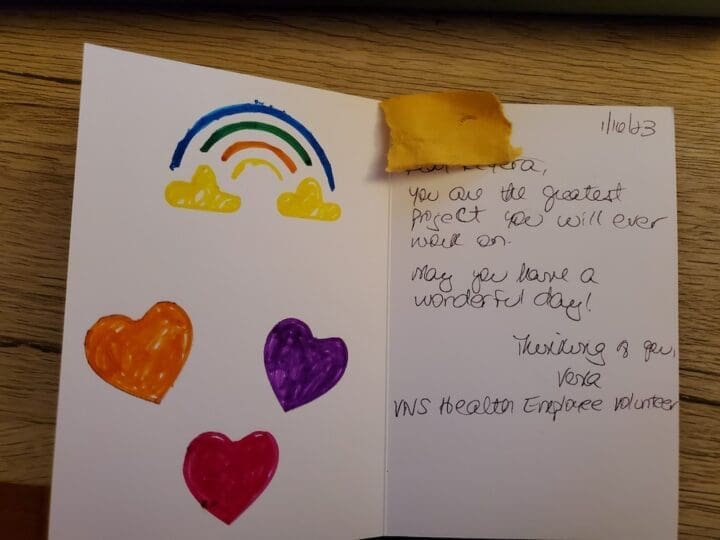 1/16/23
You are the greatest
project you will ever
work on.
May you have a
wonderful day!
Thinking of you,
Vera
VNS Health Employee Volunteer